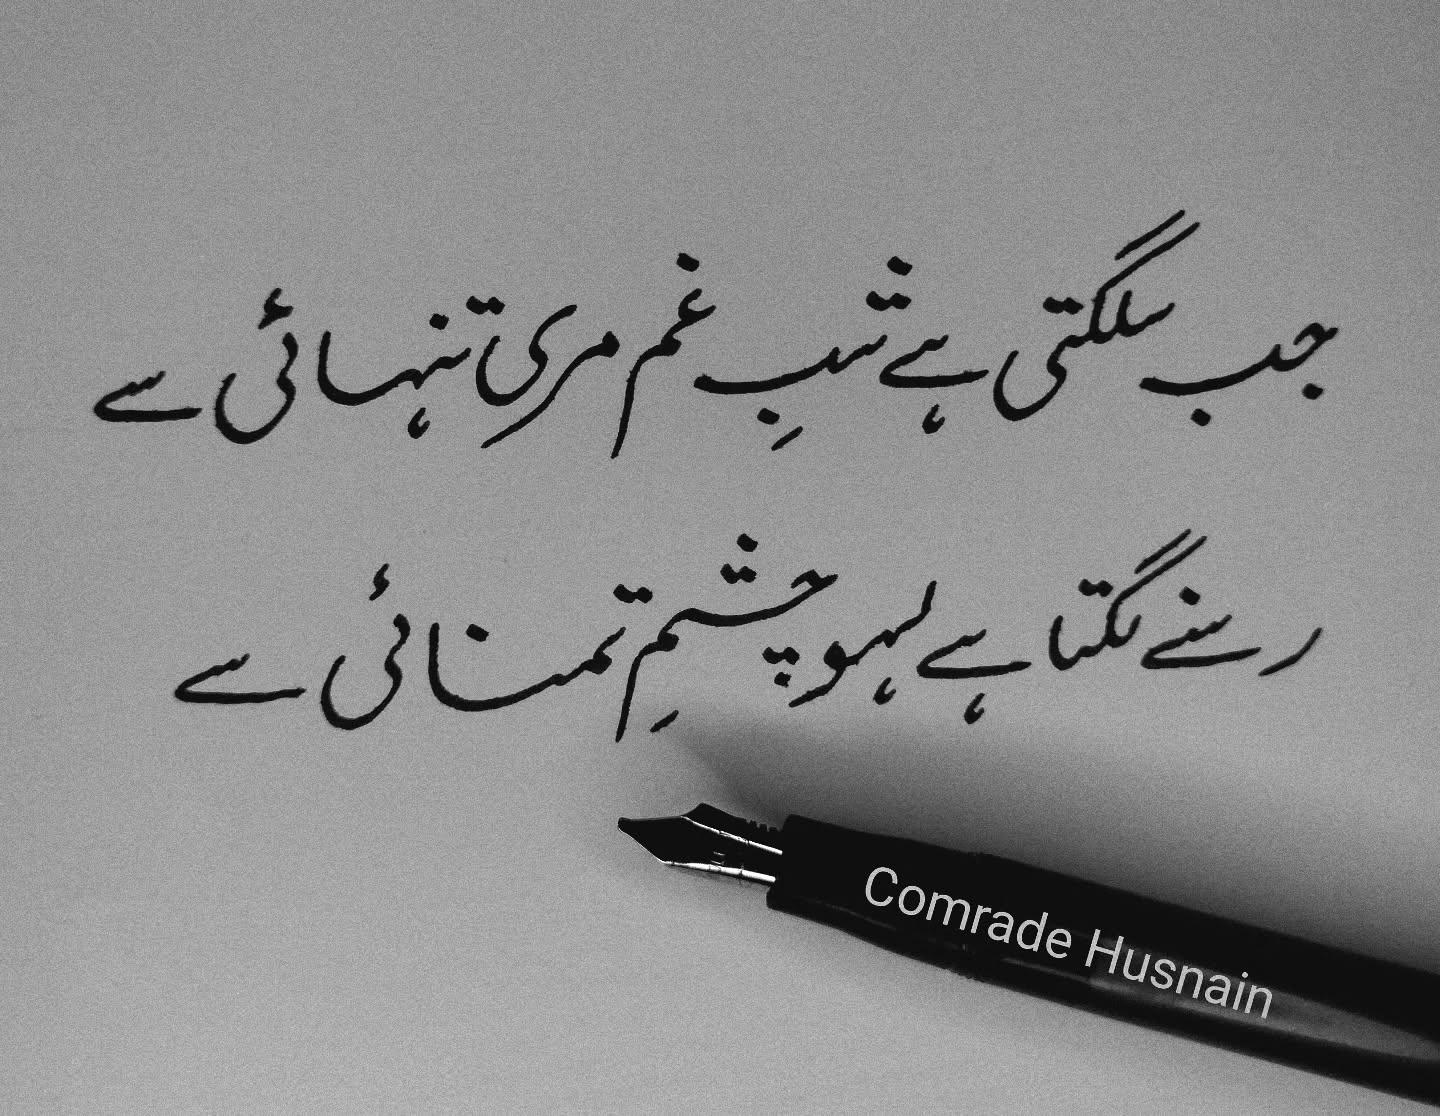 جب سلگتی ہے شبِ غم مری تنہائی سے
رسنے لگتا ہے لہو چشمِ تمنائی سے
Comrade Husnain